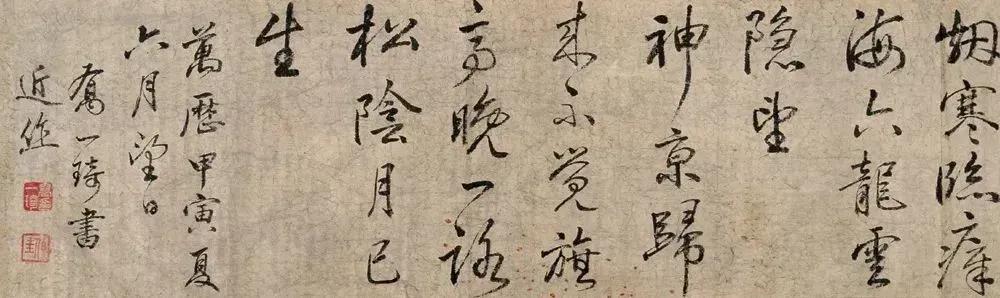 烟寒臨瘴
海六龍雲
隐望
神京歸
来不覚旗
高晚一路
松陰月已
生
萬歷甲寅夏
六月望日
喬一琦書
近作